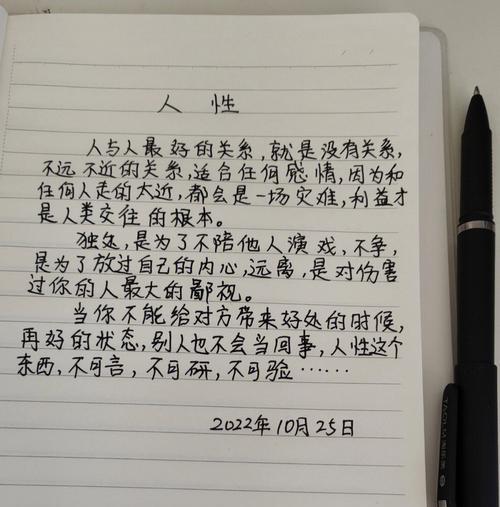 人 性
人与人最好的关系,就是没有关系,
不远不近的关系,适合任何感情,因为和
任何人走的太近,都会是一场灾难,利益才
是人类交往的根本。
独处,是为了不陪他人演戏,不争,
是为了放过自己的内心,远离,是对伤害
过你的人最大的鄙视。
当你不能给对方带来好处的时候,
再好的状态,别人也不会当回事,人性这个
东西,不可言,不可研,不可验……
2022年10月25日